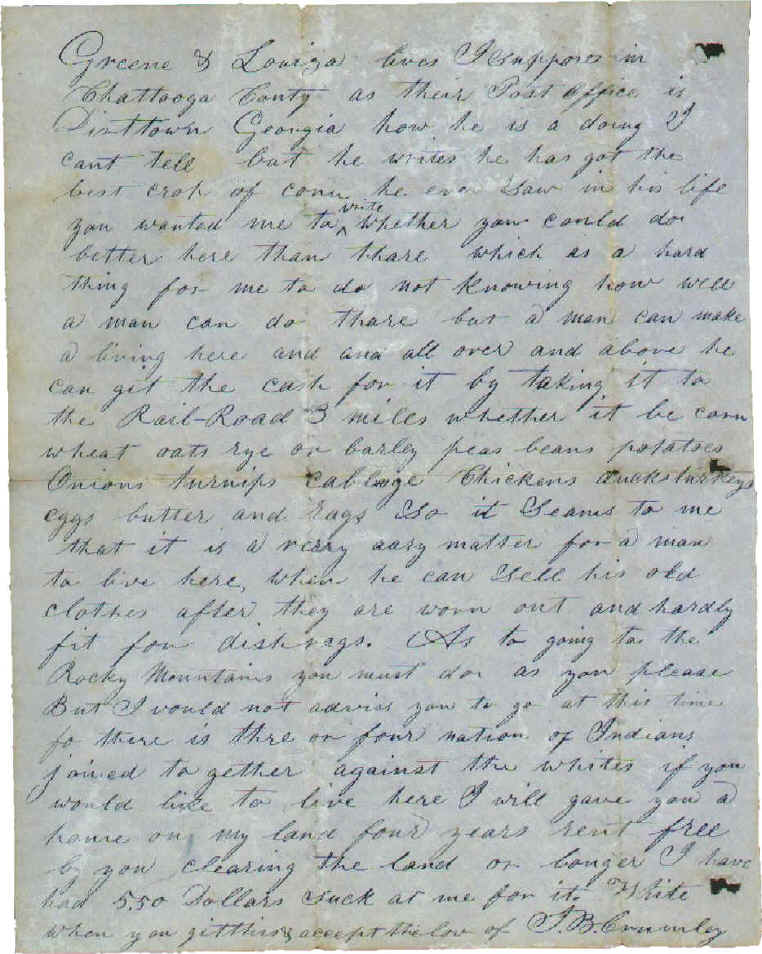 Greene & Louiza lives I suppose in
Chattooga Conty as their Post Office is
Dirttown Georgia how he is a doing I
cant tell but he writes he has got the
best crop of corn he ever saw in his life
you wanted me to write whether you could do
better here than thare which as a hard
thing for me to do not knowing how well
a man can do thare but a man can make
a living here and and all over and above he
can git the cash for it by taking it to
the Rail-Road 3 miles whether it be corn
wheat oats rye or barley peas beans potatoes
Onions turnips cabbage Chickens ducks turkeys
eggs butter and rags So it Seams to me
that it is a verry aasy matter for a man
to live here, when he can Sell his old
clothes after they are worn out and hardly
fit for dishrags. As to going to the
Rocky Mountains you must do as you please
But I would not advise you to go at this time
fo there is thre or four nation of Indians
joined to gether against the whites if you
would like to live here I will gave you a
home on my land four years rent free
by you clearing the land or longer I have
had 550 Dollars at me for it. Write
when you git this & accept the lov of J. B. Crumley